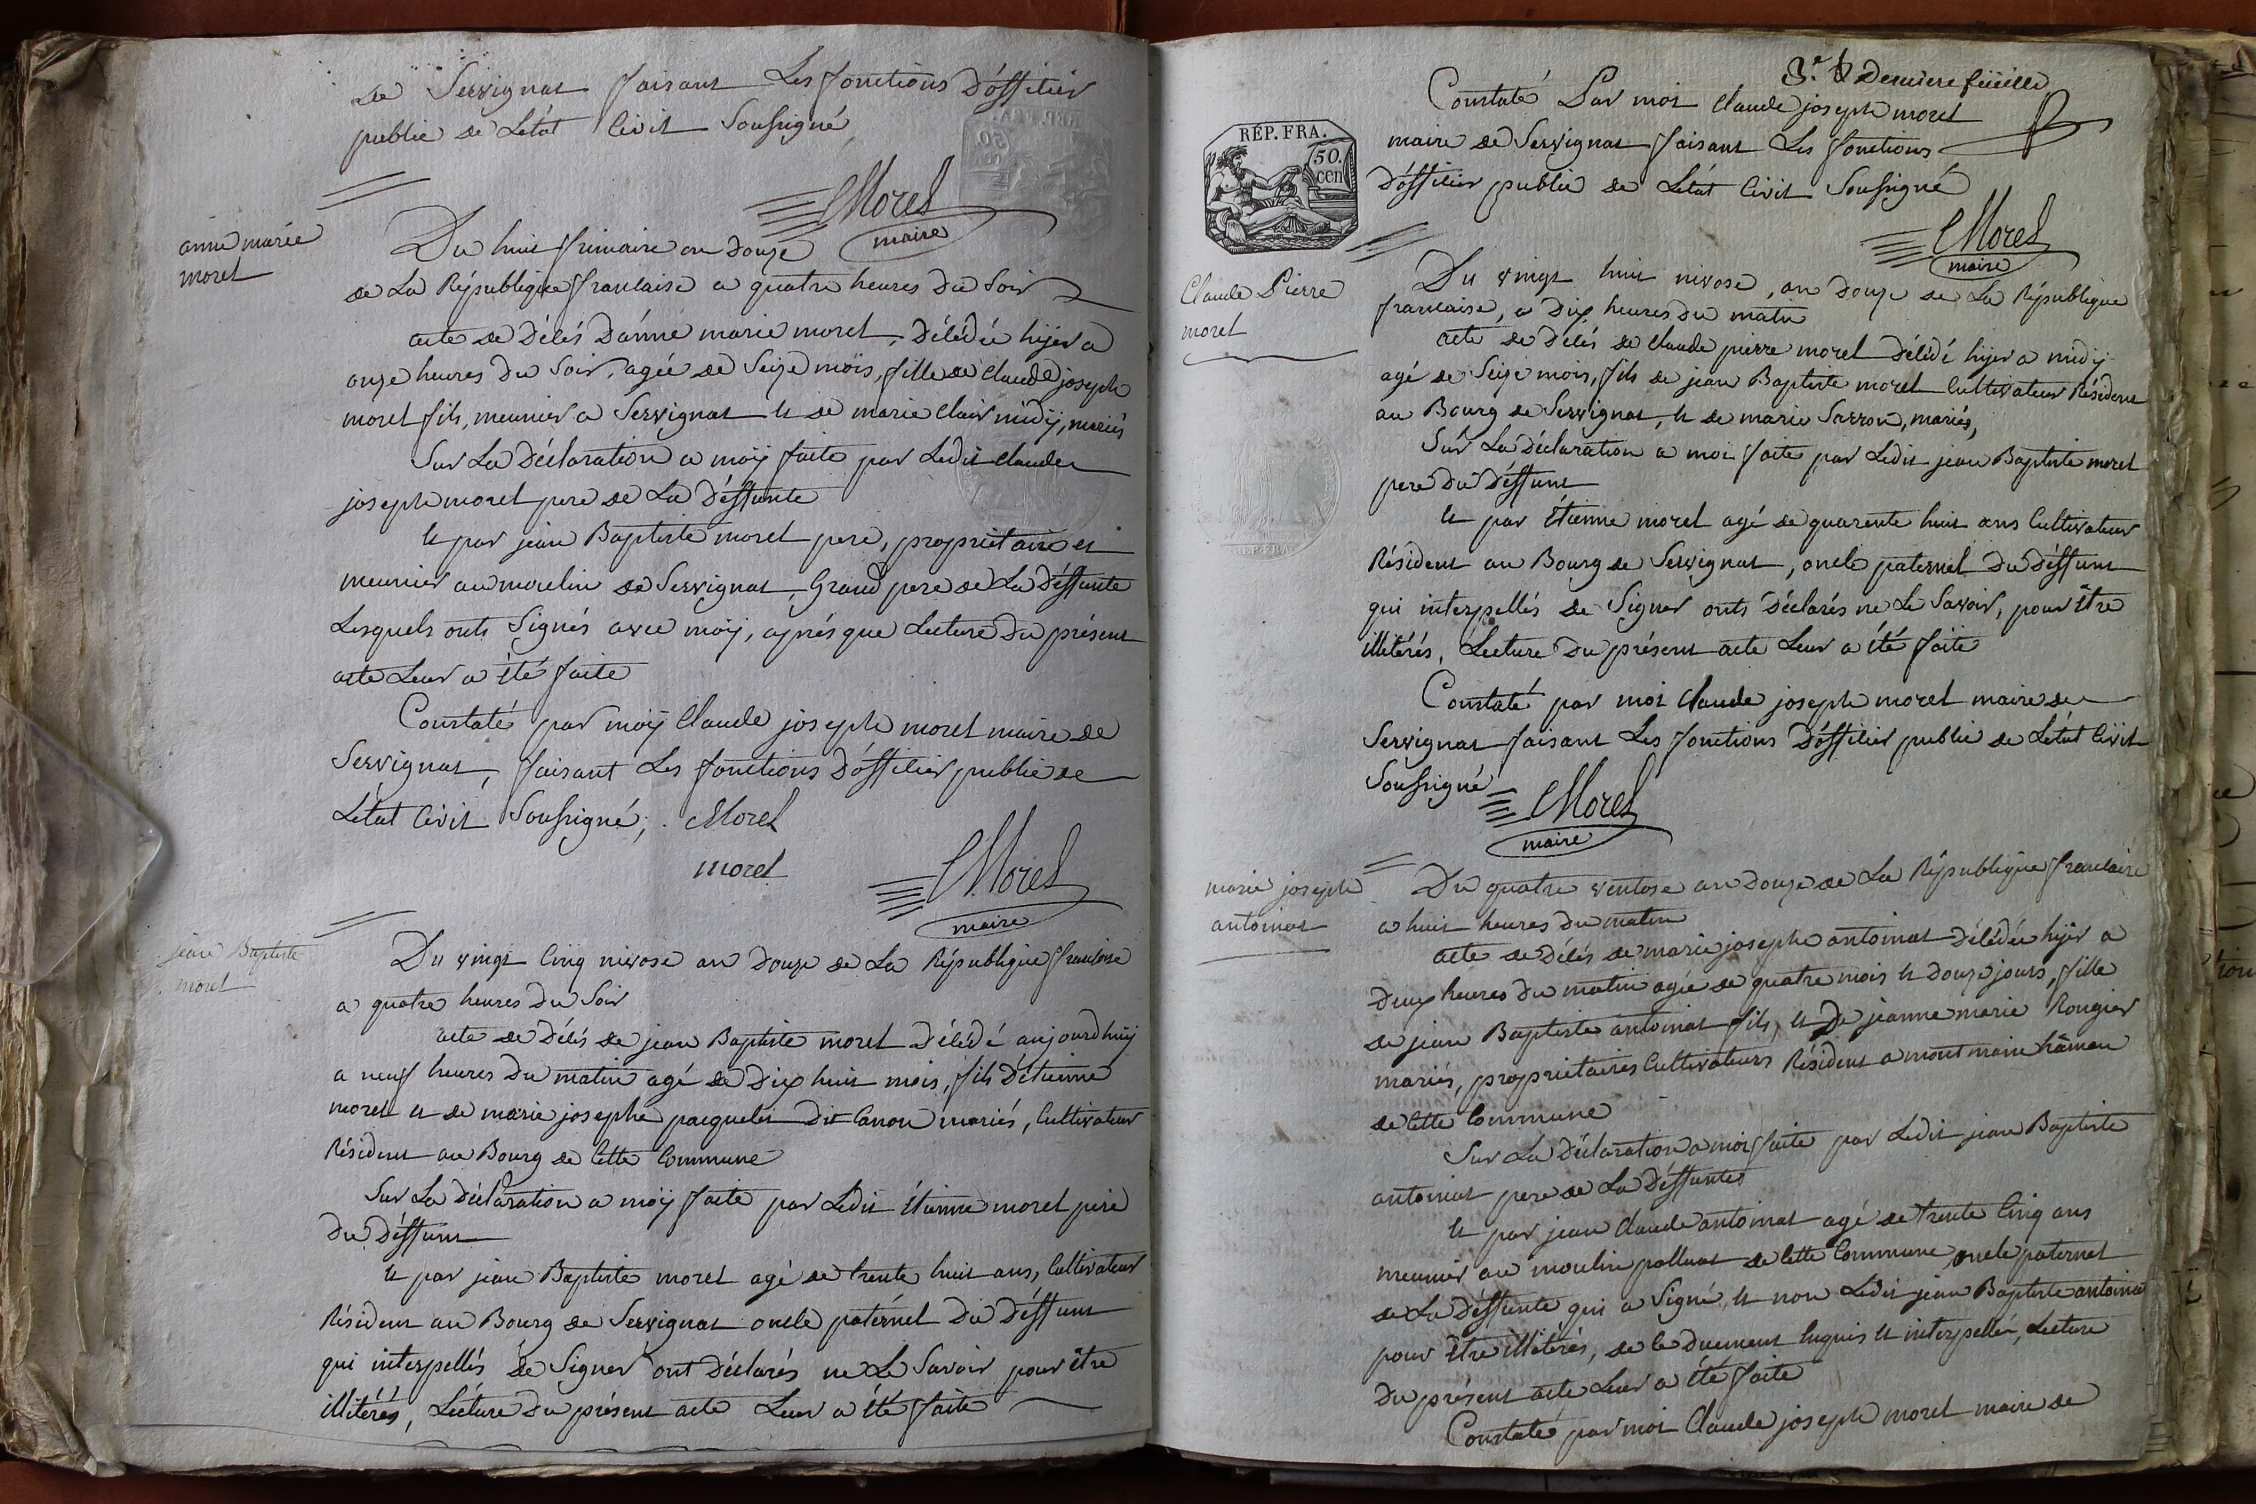 de Servignat faisant Les fonctions D'offitier
publie de Létat Civil Soussigné
Morel
maire
anne marie
morel
Du huit frimaire an douze
de La République francaise a quatre heures du Soir
acte de Délés D'anne marie morel, Délédée hijer a
onze heures du Soir, agée de Seize mois, fille de Claude joseph
morel fils, meunier a Servignat et de marie Clair midÿ, mariés
Sur La Déclaration a moÿ faite par Ledit Claude
joseph morel pere de La Déffunte
et par jean Baptiste morel pere, proprietaire et
meunier au moulin de Servignat, Grand pere de La Déffunte
Lesquels onts Signés avec moÿ, aprés que Lecture du présent
acte Leur a été faite
Constaté par moÿ Claude joseph morel maire de
Servignat, faisant Les fonctions D'offitier publie de
Létat Civil Soussigné, Morel
morel
Morel
maire
jean Baptiste
morel
Du vingt Cinq nivose an douze de La République francoise
a quatre heures du Soir
acte de Délés de jean Baptiste morel Délédé aujourdhuÿ
a neuf heures du matin agé de Dix huit mois, fils D'étienne
morel et de marie josephe pacquelet dit Canon mariés, Cultivateur
Résident au Bourg de Cette Commune
Sur La déclaration a moÿ faite par Ledit étienne morel pere
du déffunt
et par jean Baptiste morel agé de trente huit ans, Cultivateur
Résident au Bourg de Servignat oncle paternel du déffunt
qui interpellés de Signer ont Déclarés ne Le Savoir pour être
illitérés, Lécture du présent acte Leur a été faite
3.e & Derniere feüille
RÉP. FRA.
50.
cen
Constaté Par moi Claude joseph morel
maire de Servignat faisant Les fonctions
D'offitier publie de Létat Civil Soussigné
Morel
maire
Claude Pierre
morel
Du vingt huit nivose, an douze de La République
francaise, a Dix heures du matin
acte de Délés de Claude pierre morel Délédé hijer a midÿ
agé de Seize mois, fils de jean Baptiste morel Cultivateur Résident
au Bourg de Servignat, et de marie Sarron, mariés,
Sur La Déclaration a moi faite par Ledit jean Baptiste morel
pere du Déffunt
et par Étienne morel agé de quarente huit ans Cultivateur
Résident au Bourg de Servignat, oncle paternel du déffunt
qui interpellés de Signer onts Déclarés ne Le Savoir, pour être
illitérés, Lecture du présent acte Leur a été faite
Constaté par moi Claude joseph morel maire de
Servignat faisant Les fonctions D'offitier publie de Létat Civil
Soussigné
Morel
maire
marie joseph
antoinat
Du quatre ventose an douze de La République francaise
a huit heures du matin
acte de Délés de marie josephe antoinat Délédée hijer a
Deux heures du matin agée de quatre mois et douze jours, fille
de jean Baptiste antoinat fils, et De jeanne marie Rougier
mariés, proprietaires Cultivateurs Résident a montmain hâmeau
de Cette Commune
Sur La Déclaration a moi faite par Ledit jean Baptiste
antoinat pere de La Déffunte
et par jean Claude antoinat agé de trente Cinq ans
meunier au moulin palluat de Cette Commune oncle paternel
de La déffunte qui a Signé, et non Ledit jean Baptiste antoinat
pour être illitérés, de Ce Duement Enquis et interpellér, Lecture
du présent acte Leur a été faite
Constaté par moi Claude joseph morel maire de